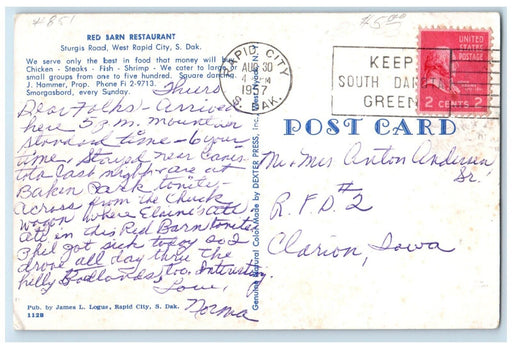 #851
$5.00
RED BARN RESTAURANT
Sturgis Road, West Rapid City, S. Dak.
We serve only the best in food that money will
Chicken - Steaks - Fish - Shrimp - We cater to large or
small groups from one to five hundred. Square dancing.
J. Hammer, Prop. Phone Fi 2-9713.
Smorgasbord, every Sunday.
RAPID CITY
AUG 30
1957
S. DAK.
KEEP
SOUTH DAK
GREEN
UNITED
STATES
POSTAGE
2 CENTS 2
Thurs
Dear Folks - Arrived
here 5 p.m. mountain
standard time - 6 your
time. Stayed near
last night - are at
Park tonite -
across from the Chuck
wagon where Elaine's ate.
ate in this Red Barn tonite
Phil got sick today so I
drove all day thru the
hilly Badlands too. Interesting.
Love,
Norma
POST CARD
Genuine Natural Color Made by DEXTER PRESS, Inc., West Nyack, N.Y.
Mr. Mrs Anton Andersen
Sr.
R.F.D. #2
Clarion, Iowa
Pub. by James L. Logue, Rapid City, S. Dak.
1128